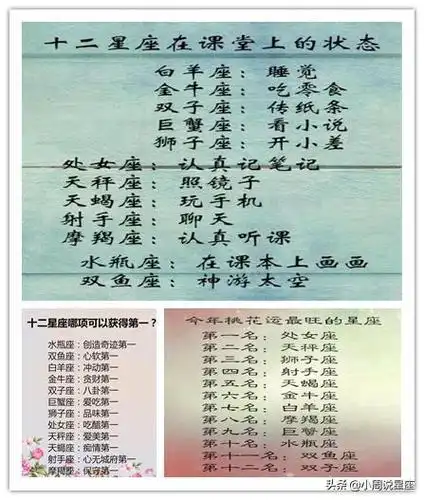 十二星座在课堂上的状态
白羊座：睡觉
金牛座：吃零食
双子座：传纸条
巨蟹座：看小说
狮子座：开小差
处女座：认真记笔记
天秤座：照镜子
天蝎座：玩手机
射手座：聊天
摩羯座：认真听课
水瓶座：在课本上画画
双鱼座：神游太空
十二星座哪项可以获得第一？
水瓶座：创造奇迹第一
双鱼座：心软第一
白羊座：冲动第一
金牛座：贪财第一
双子座：八卦第一
巨蟹座：爱吃第一
狮子座：品味第一
处女座：吃醋第一
天秤座：爱美第一
天蝎座：痴情第一
射手座：心无城府第一
摩羯座：保守第一
今年桃花运最旺的星座
第一名：处女座
第二名：天秤座
第三名：狮子座
第四名：射手座
第五名：天蝎座
第六名：金牛座
第七名：白羊座
第八名：摩羯座
第九名：巨蟹座
第十名：水瓶座
第十一名：双鱼座
第十二名：双子座
头条 @小周说星座